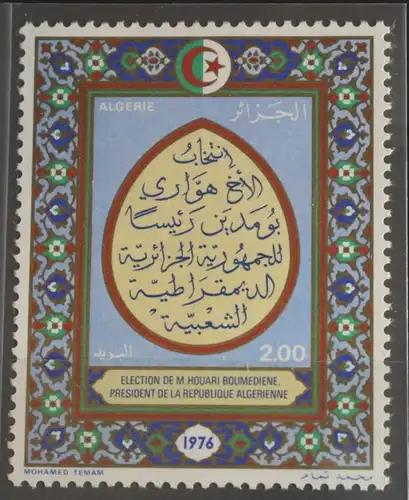 ALGERIE الجزائر
إنتخاب
الأخ هوّاري
بومدين رئيسًا
للجمهوريّة الجزائريّة
الديمقراطيّة
الشعبيّة
البريد 2.00
ELECTION DE M.HOUARI BOUMEDIENE,
PRESIDENT DE LA REPUBLIQUE ALGERIENNE
1976
MOHAMED TEMAM محمد تمام